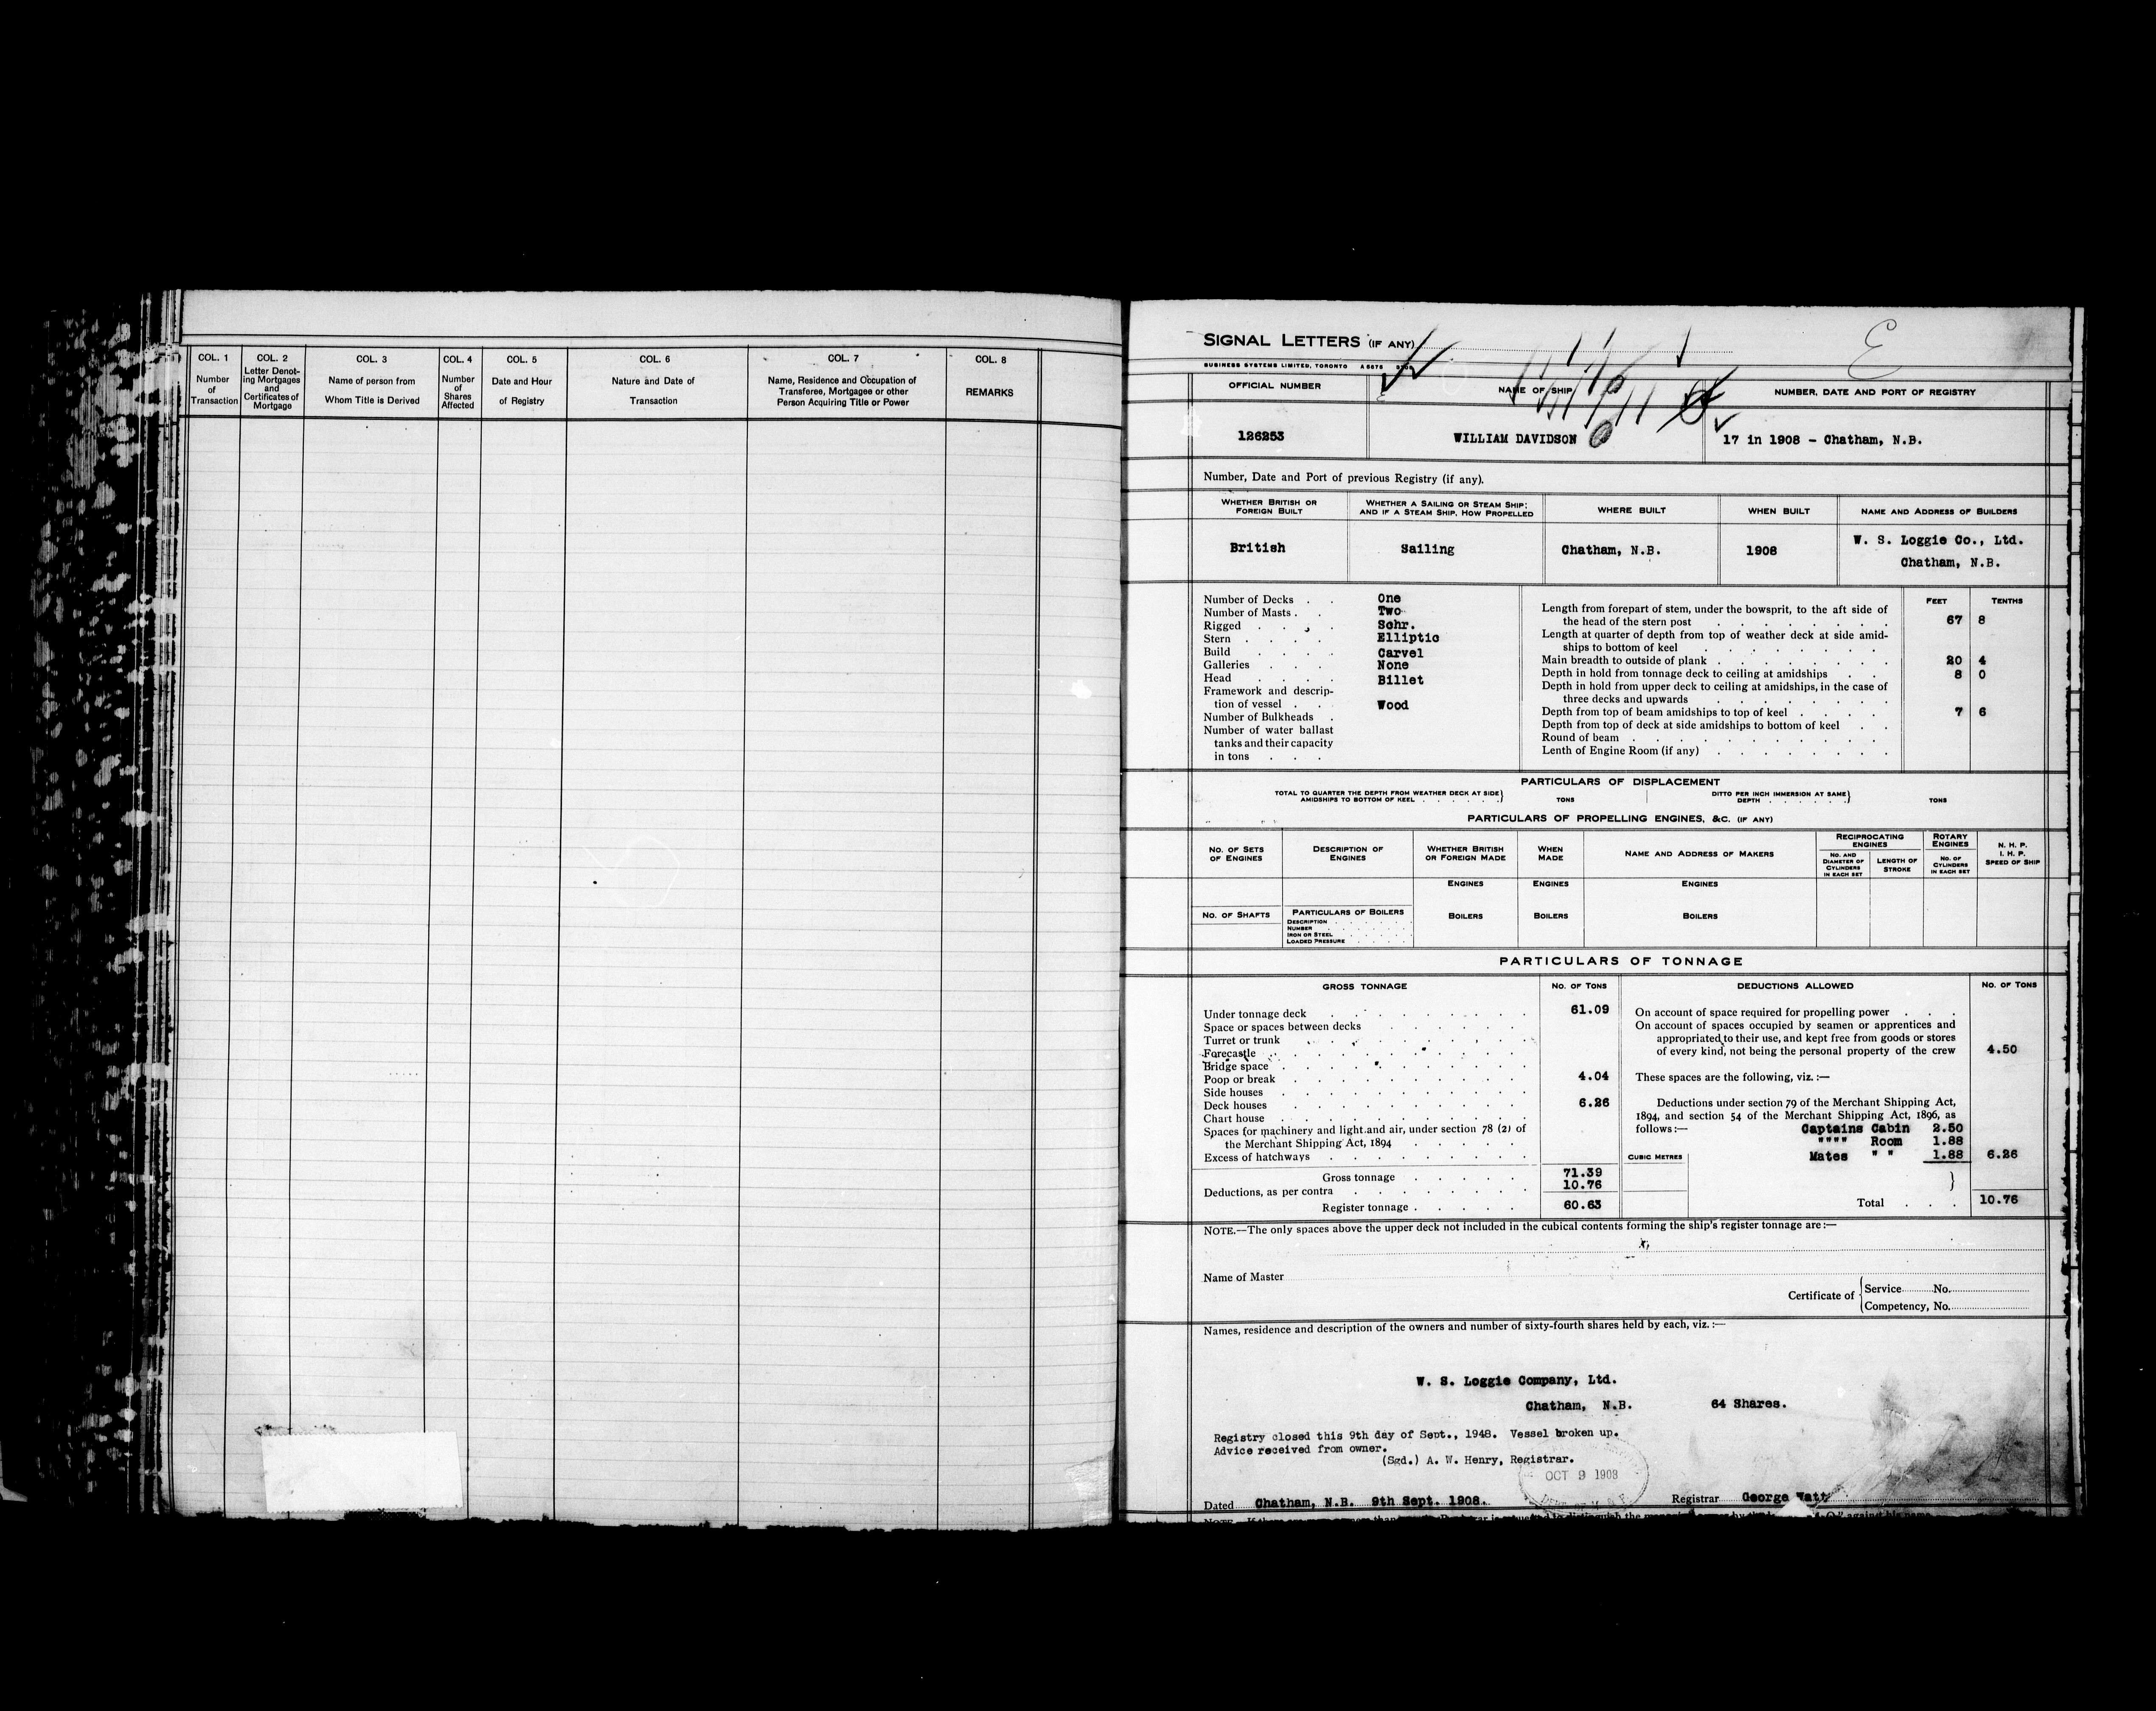 COL. 1
Number
of
Transaction
COL. 2
Letter Denot-
ing Mortgages
and
Certificates of
Mortgage
COL. 3
Name of person from
Whom Title is Derived
COL. 4
Number
of
Shares
Affected
COL. 5
Date and Hour
of Registry
COL. 6
Nature and Date of
Transaction
COL. 7
Name, Residence and Occupation of
Transferee, Mortgagee or other
Person Acquiring Title or Power
COL. 8
REMARKS
SIGNAL LETTERS (IF ANY)
E
BUSINESS SYSTEMS LIMITED, TORONTO
OFFICIAL NUMBER
NAME OF SHIP
NUMBER, DATE AND PORT OF REGISTRY
126253
WILLIAM DAVIDSON
17 in 1908 - Chatham, N.B.
Number, Date and Port of previous Registry (if any).
WHETHER BRITISH OR
FOREIGN BUILT
WHETHER A SAILING OR STEAM SHIP;
AND IF A STEAM SHIP, HOW PROPELLED
WHERE BUILT
WHEN BUILT
NAME AND ADDRESS OF BUILDERS
British
Sailing
Chatham, N.B.
1908
W. S. Loggie Co., Ltd.
Chatham, N.B.
Number of Decks . . One
Number of Masts . . Two
Rigged . . . . Schr.
Stern . . . . Elliptic
Build . . . . Carvel
Galleries . . . None
Head . . . . Billet
Framework and descrip-
tion of vessel . . Wood
Number of Bulkheads .
Number of water ballast
tanks and their capacity
in tons . . .
FEET TENTHS
Length from forepart of stem, under the bowsprit, to the aft side of
the head of the stern post 67 8
Length at quarter of depth from top of weather deck at side amid-
ships to bottom of keel
Main breadth to outside of plank 20 4
Depth in hold from tonnage deck to ceiling at amidships 8 0
Depth in hold from upper deck to ceiling at amidships, in the case of
three decks and upwards
Depth from top of beam amidships to top of keel 7 6
Depth from top of deck at side amidships to bottom of keel
Round of beam
Lenth of Engine Room (if any)
PARTICULARS OF DISPLACEMENT
TOTAL TO QUARTER THE DEPTH FROM WEATHER DECK AT SIDE
AMIDSHIPS TO BOTTOM OF KEEL
TONS
DITTO PER INCH IMMERSION AT SAME
DEPTH
TONS
PARTICULARS OF PROPELLING ENGINES, &C. (IF ANY)
NO. OF SETS
OF ENGINES
DESCRIPTION OF
ENGINES
WHETHER BRITISH
OR FOREIGN MADE
WHEN
MADE
NAME AND ADDRESS OF MAKERS
RECIPROCATING
ENGINES
NO. AND
DIAMETER OF
CYLINDERS
IN EACH SET
LENGTH OF
STROKE
ROTARY
ENGINES
NO. OF
CYLINDERS
IN EACH SET
N. H. P.
I. H. P.
SPEED OF SHIP
ENGINES
ENGINES
ENGINES
NO. OF SHAFTS
PARTICULARS OF BOILERS
DESCRIPTION
NUMBER
IRON OR STEEL
LOADED PRESSURE
BOILERS
BOILERS
BOILERS
PARTICULARS OF TONNAGE
GROSS TONNAGE
NO. OF TONS
DEDUCTIONS ALLOWED
NO. OF TONS
Under tonnage deck 61.09
Space or spaces between decks
Turret or trunk
Forecastle
Bridge space
Poop or break 4.04
Side houses
Deck houses 6.26
Chart house
Spaces for machinery and light and air, under section 78 (2) of
the Merchant Shipping Act, 1894
Excess of hatchways
Gross tonnage 71.39
Deductions, as per contra 10.76
Register tonnage 60.63
On account of space required for propelling power
On account of spaces occupied by seamen or apprentices and
appropriated to their use, and kept free from goods or stores
of every kind, not being the personal property of the crew 4.50
These spaces are the following, viz. :—
Deductions under section 79 of the Merchant Shipping Act,
1894, and section 54 of the Merchant Shipping Act, 1896, as
follows :— Captains Cabin 2.50
"""" Room 1.88
CUBIC METRES Mates " " 1.88 6.26
Total 10.76
NOTE.—The only spaces above the upper deck not included in the cubical contents forming the ship's register tonnage are :—
Name of Master
Certificate of
Service No.
Competency, No.
Names, residence and description of the owners and number of sixty-fourth shares held by each, viz. :—
W. S. Loggie Company, Ltd.
Chatham, N.B. 64 Shares.
Registry closed this 9th day of Sept., 1948. Vessel broken up.
Advice received from owner.
(Sgd.) A. W. Henry, Registrar.
OCT 9 1908
Dated Chatham, N.B. 9th Sept. 1908.
Registrar George Watt